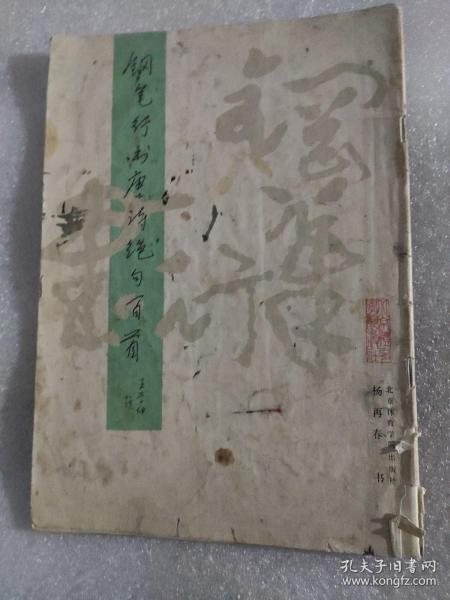 钢笔行书唐诗绝句百首
杨再春 书
北京体育学院出版社
孔夫子旧书网
www.kongfz.com